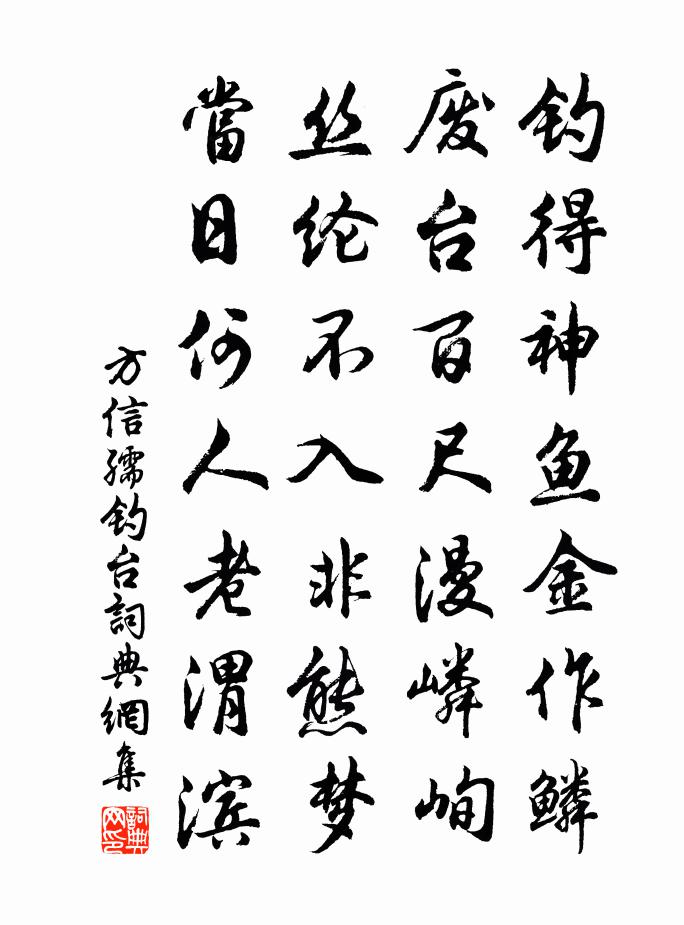 钓得神鱼金作鳞
废台百尺漫嶙峋
丝纶不入非熊梦
當日何人老渭滨
方信孺钓台詞典網集
詞典网印